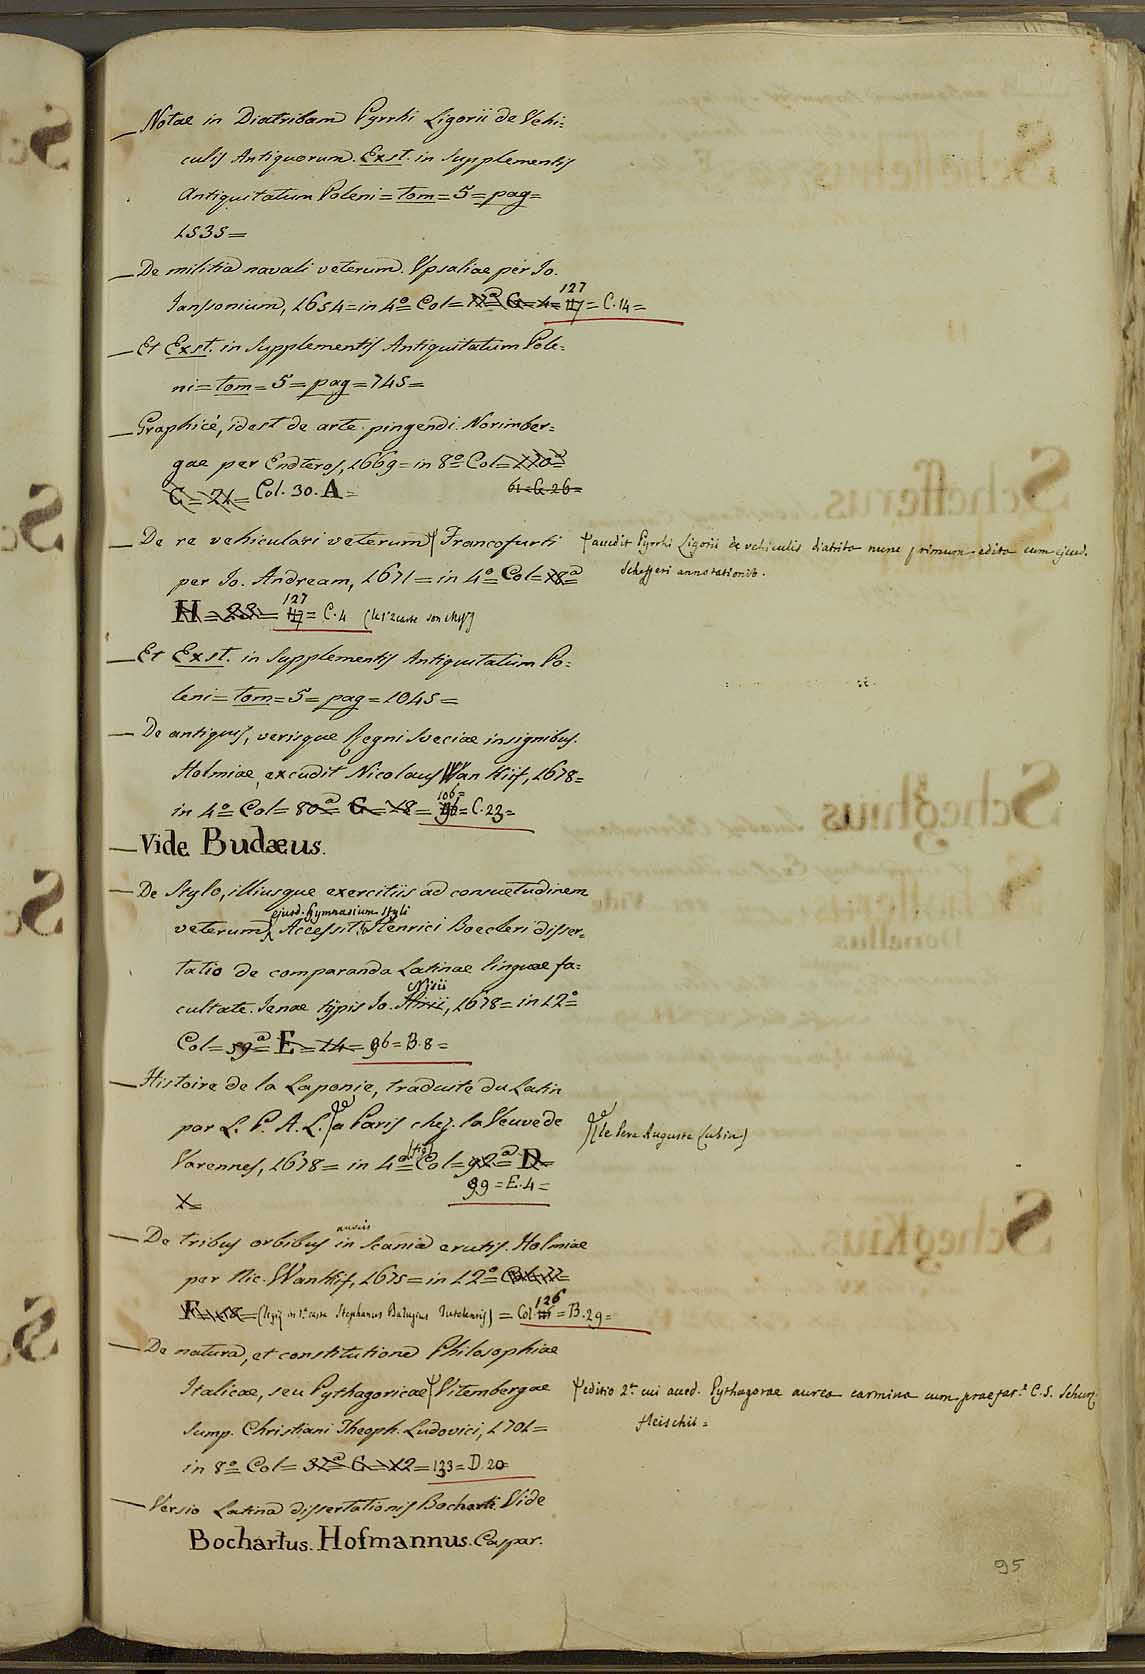 Notae in Diatribam Pyrrhi Ligorii de Vehi=
culis Antiquorum. Exst. in Supplementis
Antiquitatum Poleni = tom = 5 = pag =
1535 =
De militia navali veterum. Upsaliae per Jo.
Janssonium, 1654 = in 4º Col = 127 = C. 14 =
Et Exst. in Supplementis Antiquitatum Pole=
ni = tom = 5 = pag = 745 =
Graphicé, idest de arte pingendi. Norimber=
gae per Endteros, 1669 = in 8º Col = 170ª
G = 21 = Col. 30. A =
61 = G. 26 =
De re vehiculari veterum Francofurti
accedit Pyrrhi Ligorii de vehiculis diatriba nunc primum edita cum ejusd.
Schefferi annotationib.
per Jo. Andream, 1671 = in 4º Col = 18ª
H = 28 = 127 = C. 4
Et Exst. in Supplementis Antiquitatum Po=
leni = tom = 5 = pag = 1045 =
De antiquis, verisque Regni Sveciae insignibus.
Holmiae excudit Nicolaus Wan Kiif, 1678 =
in 4º Col = 80ª G = 18 = 106 = C. 23 =
Vide Budæus.
De Stylo, illiusque exercitiis ad consuetudinem
ejusd. Gymnasium Styli
veterum, Accessit Henrici Boecleri disser=
tatio de comparanda Latinae linguae fa=
cultate. Jenae typis Jo. Nisii, 1678 = in 12º
Col = 59ª E = 14 = 96 = B. 8 =
Histoire de la Laponie, traduite du Latin
par L. P. A. L. a Paris chez. la Veuve de
le Pere Auguste Lubin
Varennes, 1678 = in 4º fig. Col = 92ª D =
X = 99 = E. 4 =
De tribus orbibus aureis in Scania erutis. Holmiae
per Nic. Wankif, 1675 = in 12º Col
F = 18 = (legis in 1ª carta Stephanus Baluzius Tutelensis) = Col 126 = B. 29 =
De natura, et constitutione Philosophiae
Italicae, seu Pythagoricae Vitembergae
editio 2ª cui acced. Pythagorae aurea carmina cum praefat.e C. S. Schurz
fleischii =
Sump. Christiani Theoph. Ludovici, 1701 =
in 8º Col = 37ª G = 12 = 133 = D. 20
Versio Latina dissertationis Bocharti. Vide
Bochartus. Hofmannus. Caspar.
95